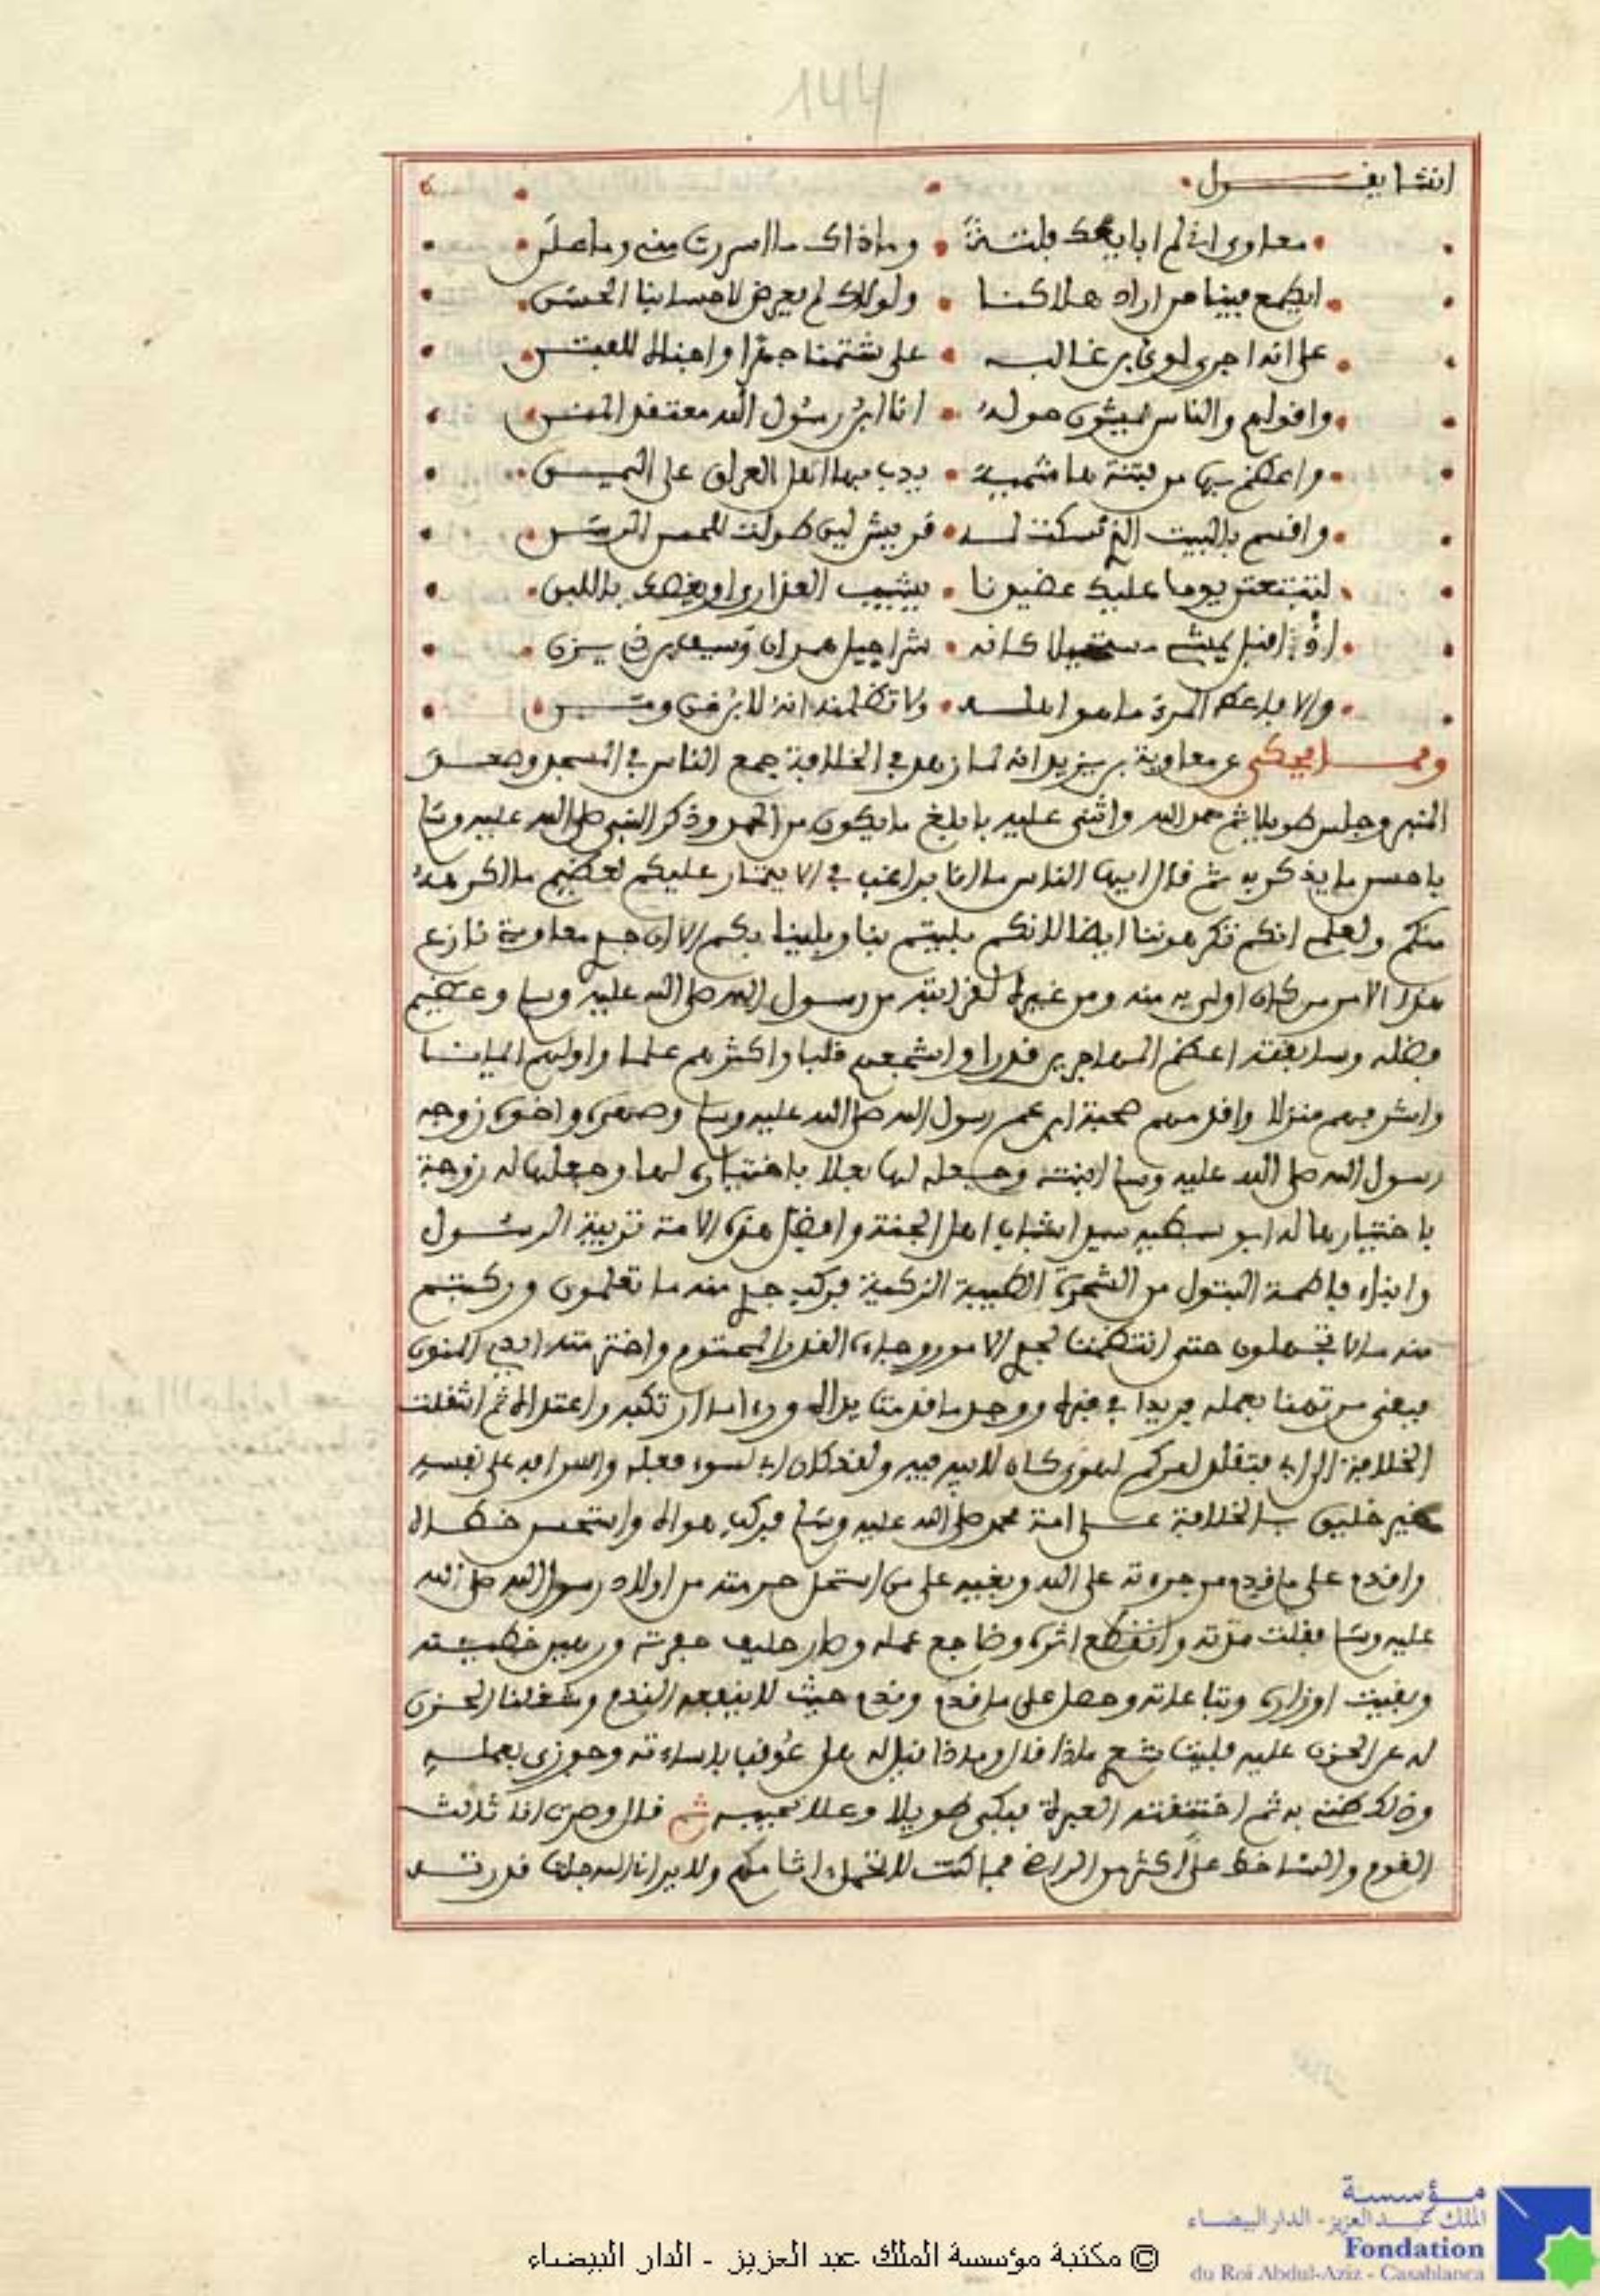 144
انشا يقول
معاوي اني لم ابايعك فلتة وماذاك ما اسررت مني وما علن
ايطمع فينا من اراد هلاكنا ولولاك لم يعرض لاحسابنا الحسن
على انه اجرى لوي بن غالب على شتمنا جهرا
والناس حوله انا ابن رسول الله
واعظم بها من فتنة هاشمية يدب بها اهل العراق على
واقسم بالبيت الذي نسكت له قريش لين طولت للحسن الرسن
يوما عليك يشيب العذارى او يغص باللبن
اذا اقبل يمشي كانه شراحيل همدان وسيف بن ذي يزن
والا فاعط المرء ما هو اهله ولا تظلمنه انه لابن
ومما يحكى عن معاوية بن يزيد انه لما زهد في الخلافة جمع الناس في المسجد وصعد
المنبر وجلس طويلا ثم حمد الله واثنى عليه بابلغ ما يكون من الحمد وذكر النبي صلى الله عليه وسلم
باحسن ما يذكر به ثم قال ايها الناس ما انا براغب في الايتمار عليكم لعظيم ما اكرهه
منكم ولعلم انكم تكرهوننا ايضا لانكم بليتم بنا وبلينا بكم الا ان جدي معاوية نازع
هذا الامر من كان اولى به منه ومن غيره لقرابته من رسول الله صلى الله عليه وسلم وعظيم
فضله وسابقته اعظم المهاجرين قدرا واشجعهم قلبا واكثرهم علما واولهم ايمانا
واشرفهم منزلا واقدمهم صحبة ابن عم رسول الله صلى الله عليه وسلم وصهره واخوه زوجه
رسول الله صلى الله عليه وسلم ابنته وجعله لها بعلا باختياره لها وجعلها له زوجة
باختيارها له ابو سبطيه سيدا شباب اهل الجنة وافضل هذه الامة تربية الرسول
وابناه فاطمة البتول من الشجرة الطيبة الزكية فركب جدي منه ما تعلمون وركبتم
منه ما لا تجهلون حتى انتظمت لجدي الامور وجاءه القدر المحتوم واخترمته ايدي المنون
فبقي مرتهنا بعمله فريدا في قبره ووجد ما قدمت يداه وراء ما ارتكبه واعتداه ثم انتقلت
الخلافة الى ابي فتقلد امركم لهوى كان لابيه فيه ولقد كان ابي لسوء فعله واسرافه على نفسه
غير خليق بالخلافة على امة محمد صلى الله عليه وسلم فركب هواه واستحسن خطاه
واقدم على ما قدم من جرءته على الله وبغيه على من استحل حرمته من اولاد رسول الله صلى الله
عليه وسلم فقلت مدته وانقطع اثره وضاجع عمله وصار حليف حفرته ورهين خطيئته
وبقيت اوزاره وتباعاته وحصل على ما قدم وندم حيث لا ينفعه الندم وشغلنا الحزن
له عن الحزن عليه فليت شعري ماذا قال وماذا قيل له هل عوقب باساءته وجوزي بعمله
وذلك ظني به ثم اختنقته العبرة فبكى طويلا وعلا نحيبه ثم قال وصرت انا ثالث
القوم والساخط علي اكثر من الراضي فما كنت لاتحمل اثامكم ولا يراني الله جلت قدرته
مؤسسة
الملك عبد العزيز - الدار البيضاء
Fondation
du Roi Abdul-Aziz - Casablanca
© مكتبة مؤسسة الملك عبد العزيز - الدار البيضاء